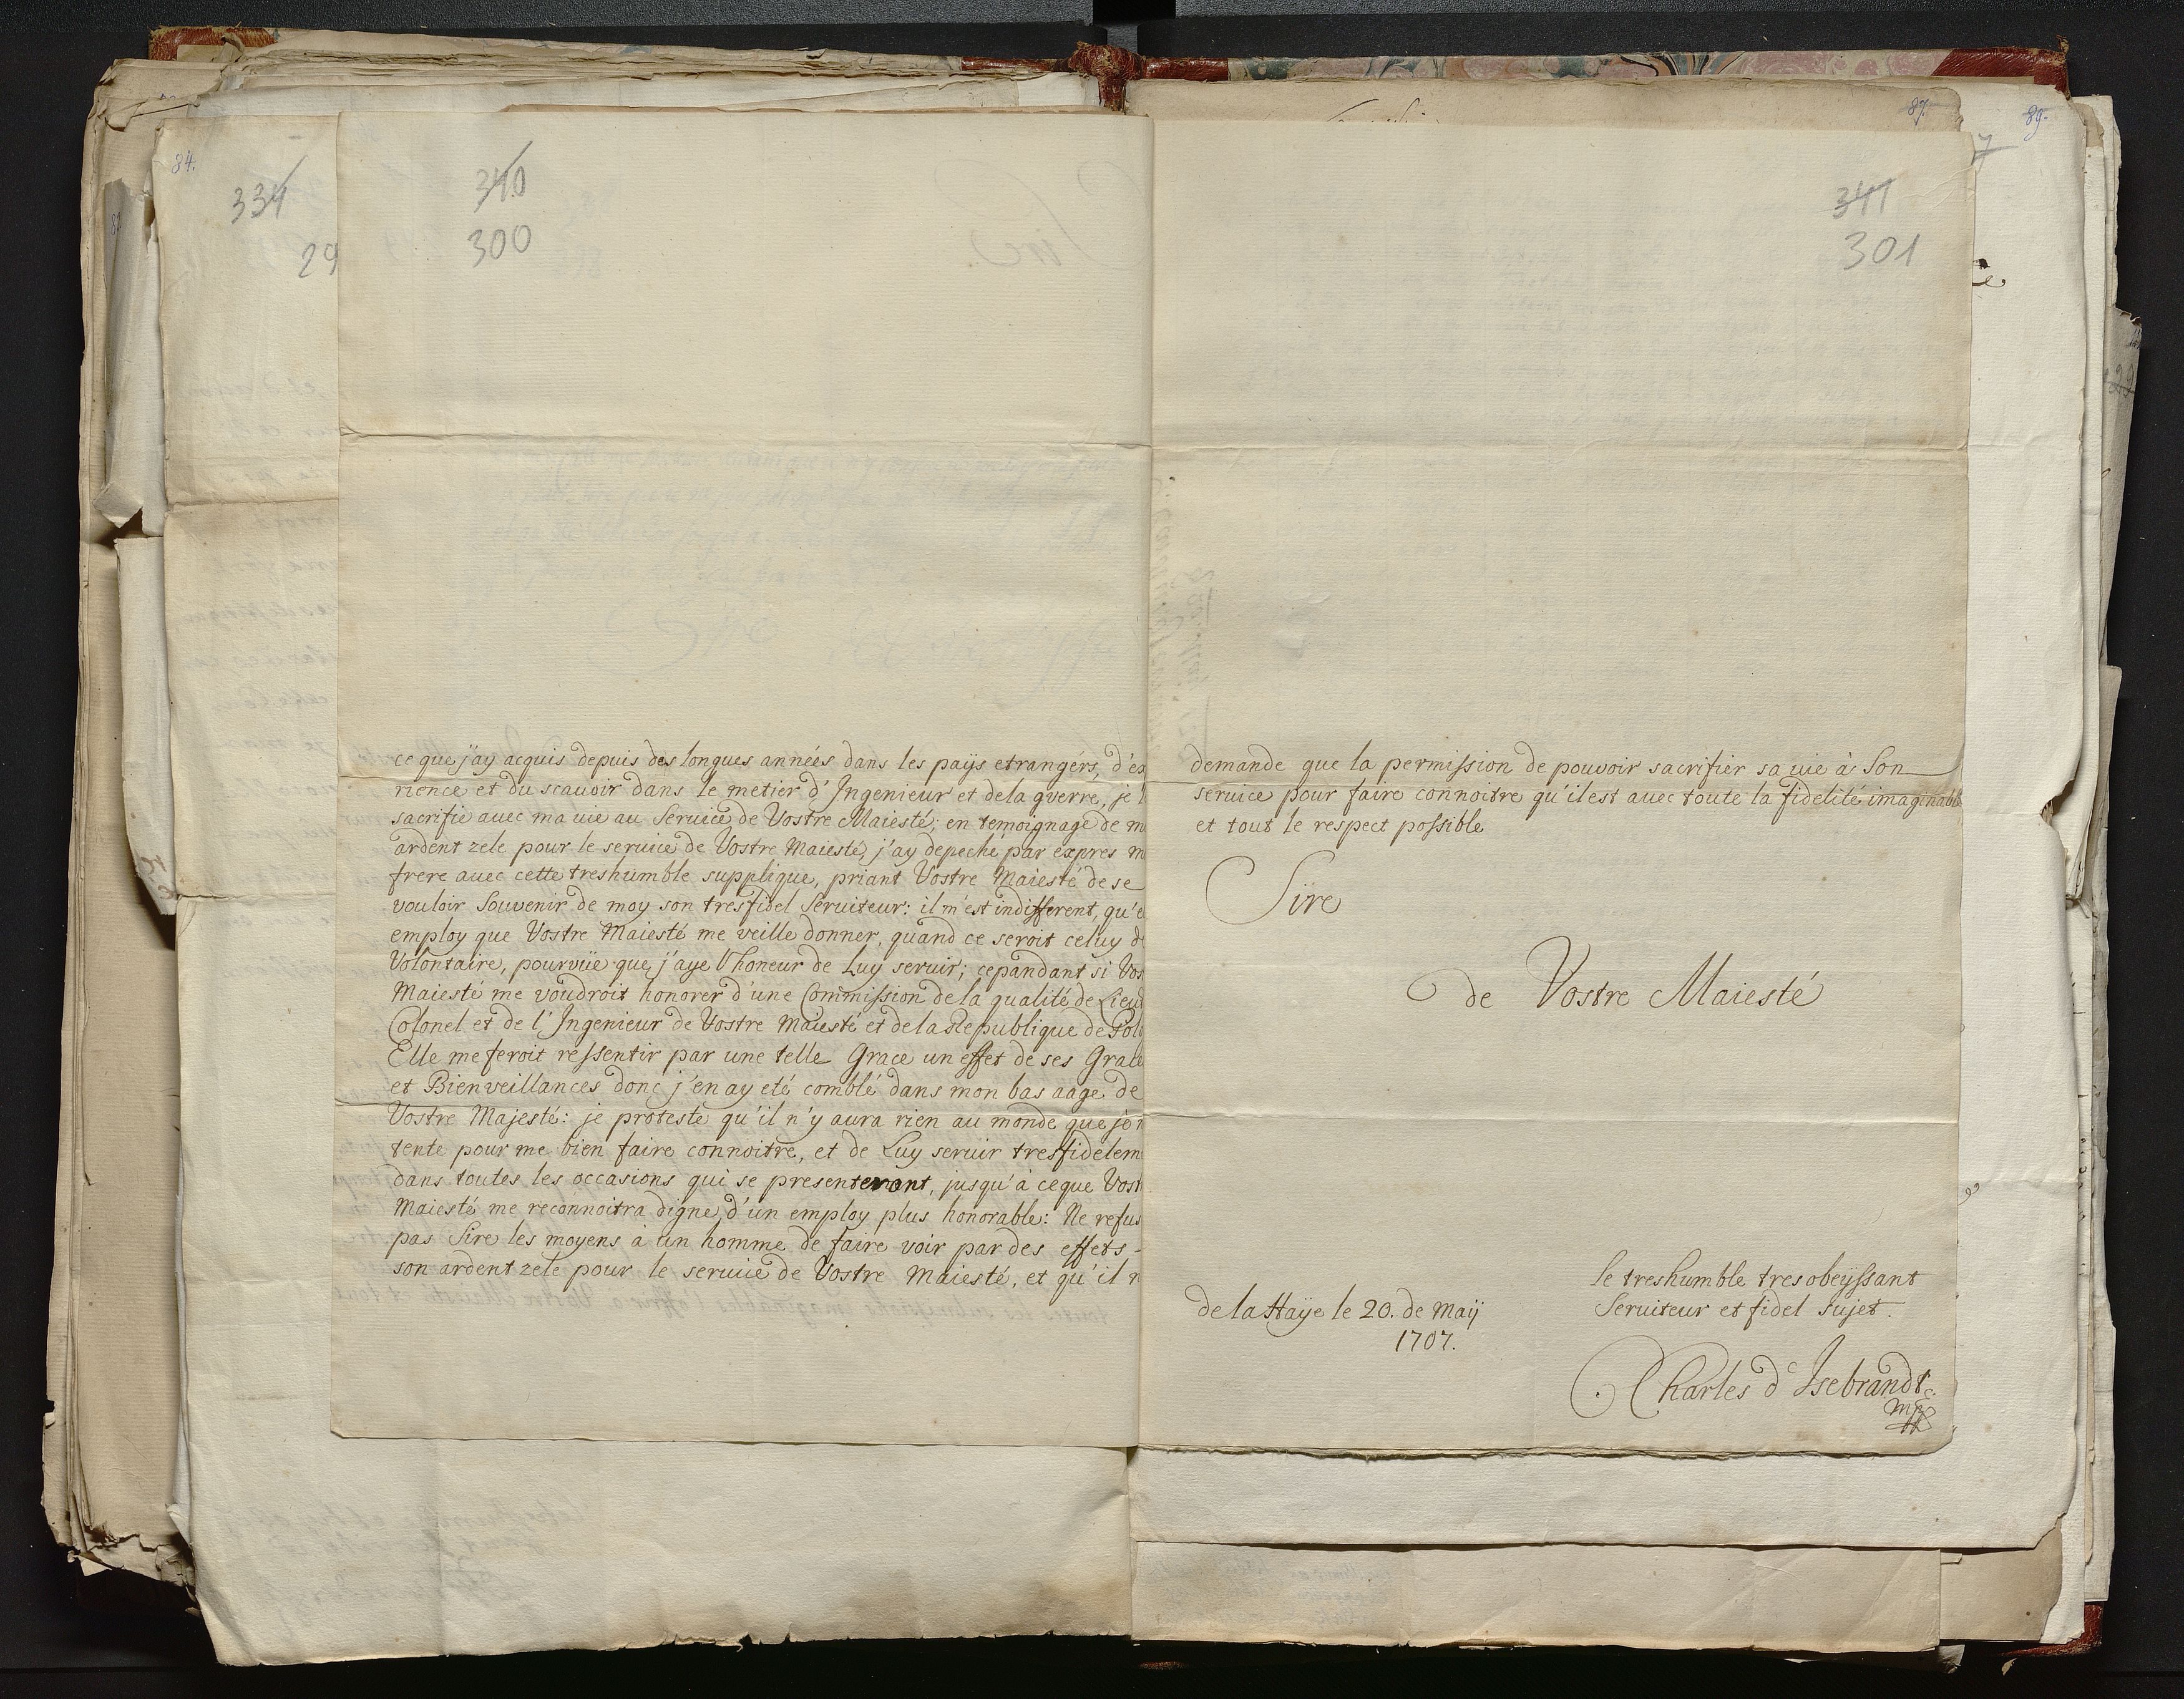 84.
334
29
340
300
ce que j'ay acquis depuis des longues années dans les paÿs etrangérs, d'ex
rience et du scauoir dans le metier d'Ingenieur et dela gverre, je l
sacrifie auec ma uie au Seruice de Vostre Maiesté; en temoignage de m
ardent zele pour le seruice de Vostre Maiesté, j'ay depeché par expres m
frere auec cette treshumble supplique, priant Vostre Maiesté de se
vouloir Souvenir de moy son tresfidel Seruiteur: il m'est indifferent, qu'e
employ que Vostre Maiesté me veille donner, quand ce seroit celuy d
Volontaire, pourvüe que j'aye l'honeur de Luy seruir; cepandant si Vos
Maiesté me voudroit honorer d'une Commission de la qualité de Lieut
Colonel et de l'Ingenieur de Vostre Maiesté et dela Republique de Pol
Elle me feroit ressentir par une telle Grace un effet de ses Grace
et Bienveillances donc j'en ay eté comblé dans mon bas aage de
Vostre Majesté: je proteste qu'il n'y aura rien au monde que je n
tente pour me bien faire connoitre, et de Luy seruir tresfidelem
dans toutes les occasions qui se presenteront, jusqu'à ceque Vost
Maiesté me reconnoitra digne d'un employ plus honorable: Ne refus
pas Sire les moyens à un homme de faire voir par des effets -
son ardent zele pour le seruice de Vostre Maiesté, et qu'il n
87.
89.
341
301
demande que la permission de pouvoir sacrifier sa uie à Son
seruice pour faire connoitre qu'il est auec toute la fidelité imaginable
et tout le respect possible
Sire
de Vostre Maiesté
le treshumble tresobeÿssant
Seruiteur et fidel sujet.
de la Haÿe le 20. de Maÿ
1707.
Charles d'Isebrandt
mp